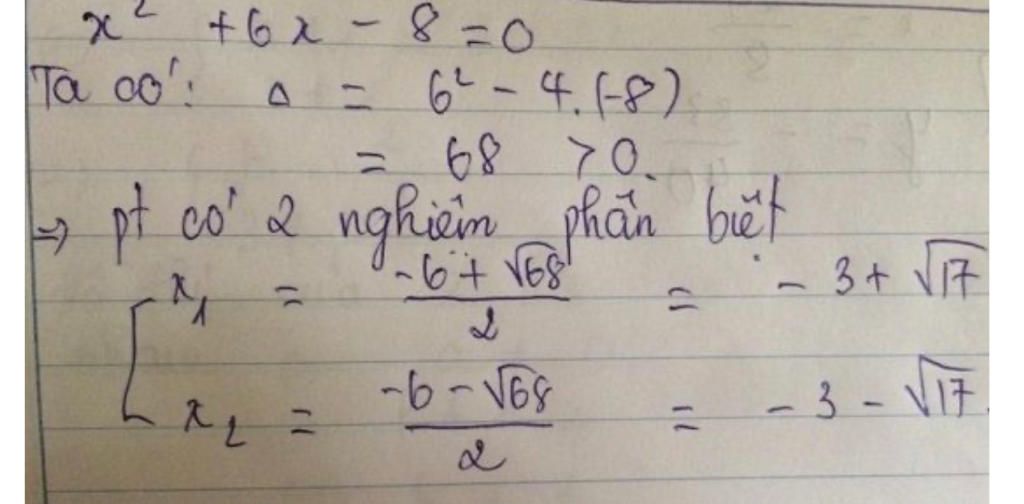 x² + 6x - 8 = 0
Ta có: Δ = 6² - 4.(-8)
= 68 > 0.
=> pt có 2 nghiệm phân biệt
[ x₁ = (-6 + √68)/2 = -3 + √17
x₂ = (-6 - √68)/2 = -3 - √17.